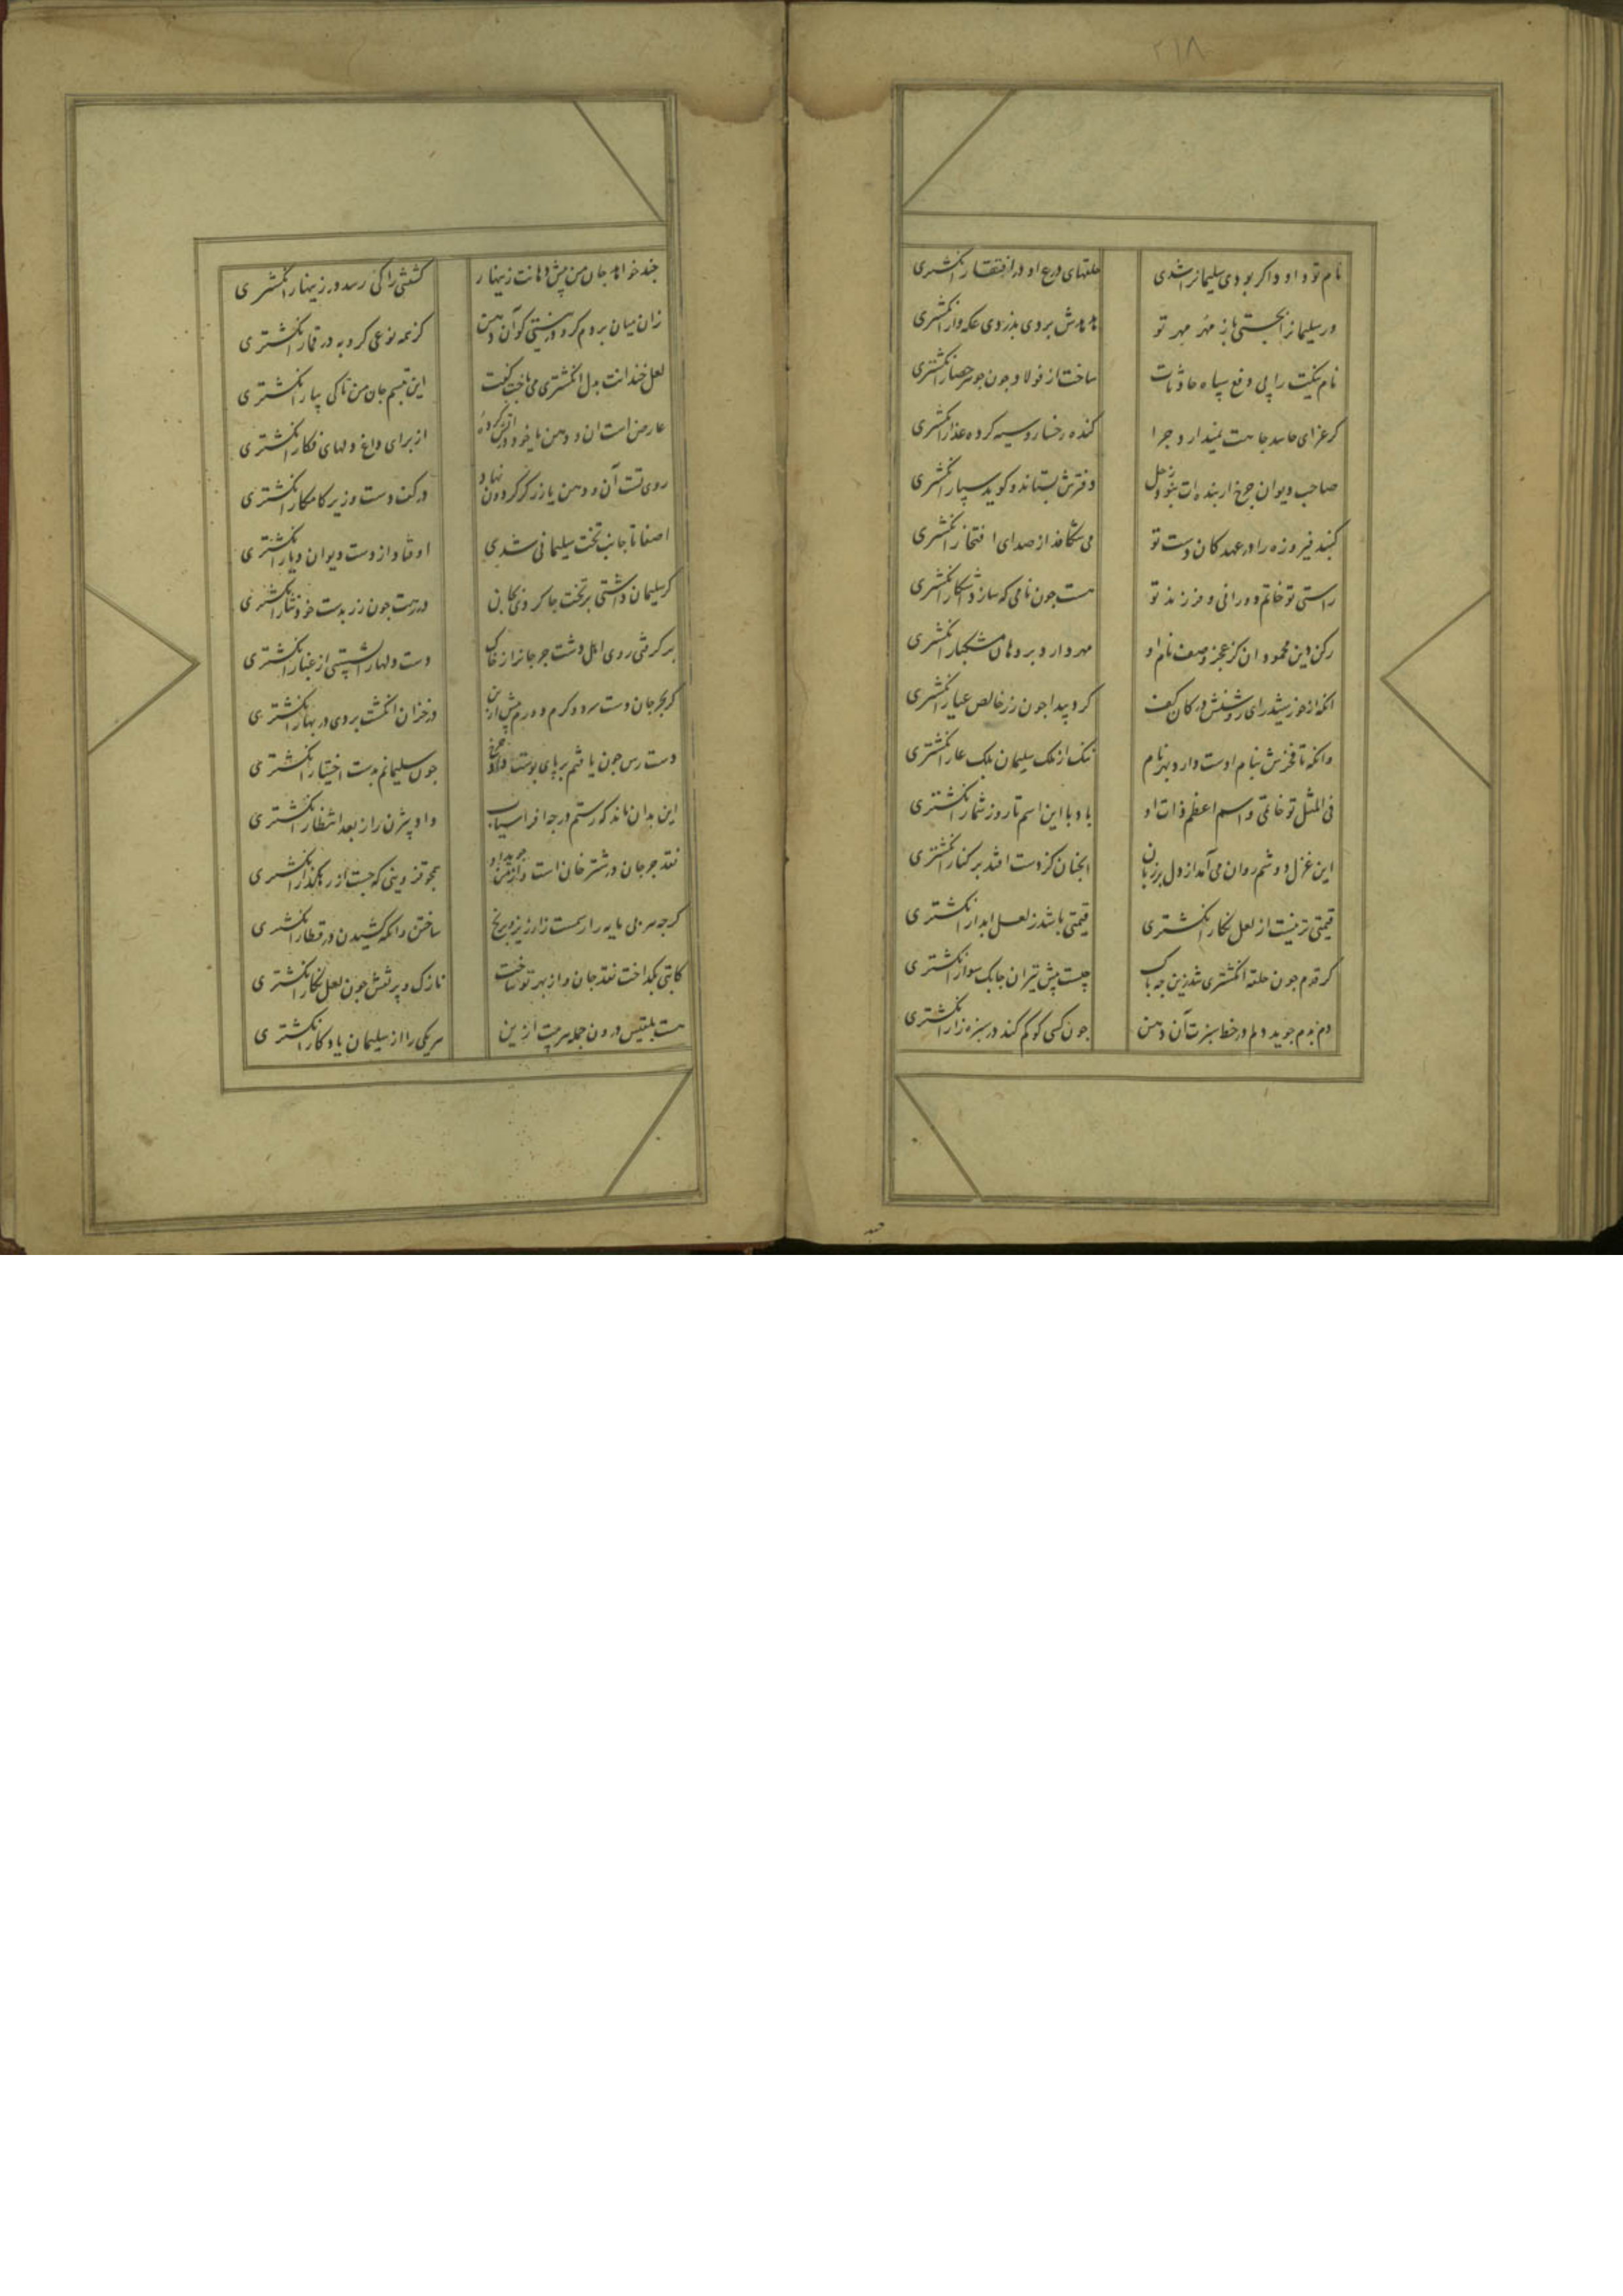 ٢١٨
نام تو داود اگر بودی سلیمانرا شدی حلقهای درع او در افتقار انکشتری
ور سلیمانرا بجستی باز مهر مهر تو هدهدش بردی بدزدی عکه وار انکشتری
نام نیکت را پی دفع سپاه حادثات ساخت از فولاد چون جوهر حصار انکشتری
کر عزای حاسد جاهت نمیدارد چرا کنده رخسار و سیه کرده عذار انکشتری
صاحب دیوان چرخ ار بنده ات نبود زحل دفترش بستاند و کوید سپار انکشتری
کنبد فیروزه را در عهد کان دست تو می شکافد از صدای افتخار انکشتری
راستی تو خاتم دورانی و فرزند تو هست چون نامی که سازد آشکار انکشتری
رکن دین محمود ان کز عجز وصف نام او مهر دارد بر دهان مشکبار انکشتری
انکه از خورشید رای روشنش در کان کف کرد پیدا چون زر خالص عیار انکشتری
وانکه تا فخرش بنام اوست دارد بهر نام ننک از ملک سلیمان بلک عار انکشتری
فی المثل تو خاتمی و اسم اعظم ذات او باد با این اسم تا روز شمار انکشتری
این غزل دوشم روان می آمد از دل بر زبان انچنان کز دست افتد بر کنار انکشتری
قیمتی تر نیست از لعل نکار انکشتری قیمتی باشد ز لعل ابدار انکشتری
کر قدم چون حلقه انکشتری شد زین چه باک چیست پیش تیر ان چابک سوار انکشتری
دم بدم جوید دلم در خط سبزت آن دهن چون کسی کو کم کند در سبزه زار انکشتری
چند
چند خواهد جان من پیش دهانت زینهار کشتی را کی رسد در زینهار انکشتری
زان میان بردم کرو در نیستی کو آن دهن کز همه نوعی کرو به در قمار انکشتری
لعل خندانت بدل انکشتری می باخت کفت این تبسم جان من تا کی بیار انکشتری
عارض است ان و دهن یا خود در آتش کرده از برای داغ دلهای فکار انکشتری
روی تست آن و دهن یا زرکر کردون نهاد در کف دست وزیر کامکار انکشتری
اصفا تا جانب تخت سلیمانی شدی اوفتاد از دست دیوان دیار انکشتری
کر سلیمان داشتی بر تخت جا کردی در رهت چون زر بدست خود نثار انکشتری
بر کرفتی روی اهل دست چو جانرا ز خاک دست دلها را شستی از غبار انکشتری
کر چو جان دست سرد و کرم دورم پیش ازین در خزان انکشت بردی در بهار انکشتری
دست رس چون یافتم بر پای بوست چون سلیمانم بدست اختیار انکشتری
این بدان ماند که رستم در چه افراسیاب داد بیژن را ز بعد انتظار انکشتری
نقد جو جان در شتر خان است همچو قزوینی که جست از رهکذار انکشتری
کرچه سر بی پایه را رسمست ساختن وانکه کشیدن در قطار انکشتری
کاتبی بکداخت نقد جان و از بهر تو ساخت نازک و پر نقش چون لعل نکار انکشتری
هست بلقیس درون جمله هر بیت ازین هر یکی را از سلیمان یادکار انکشتری